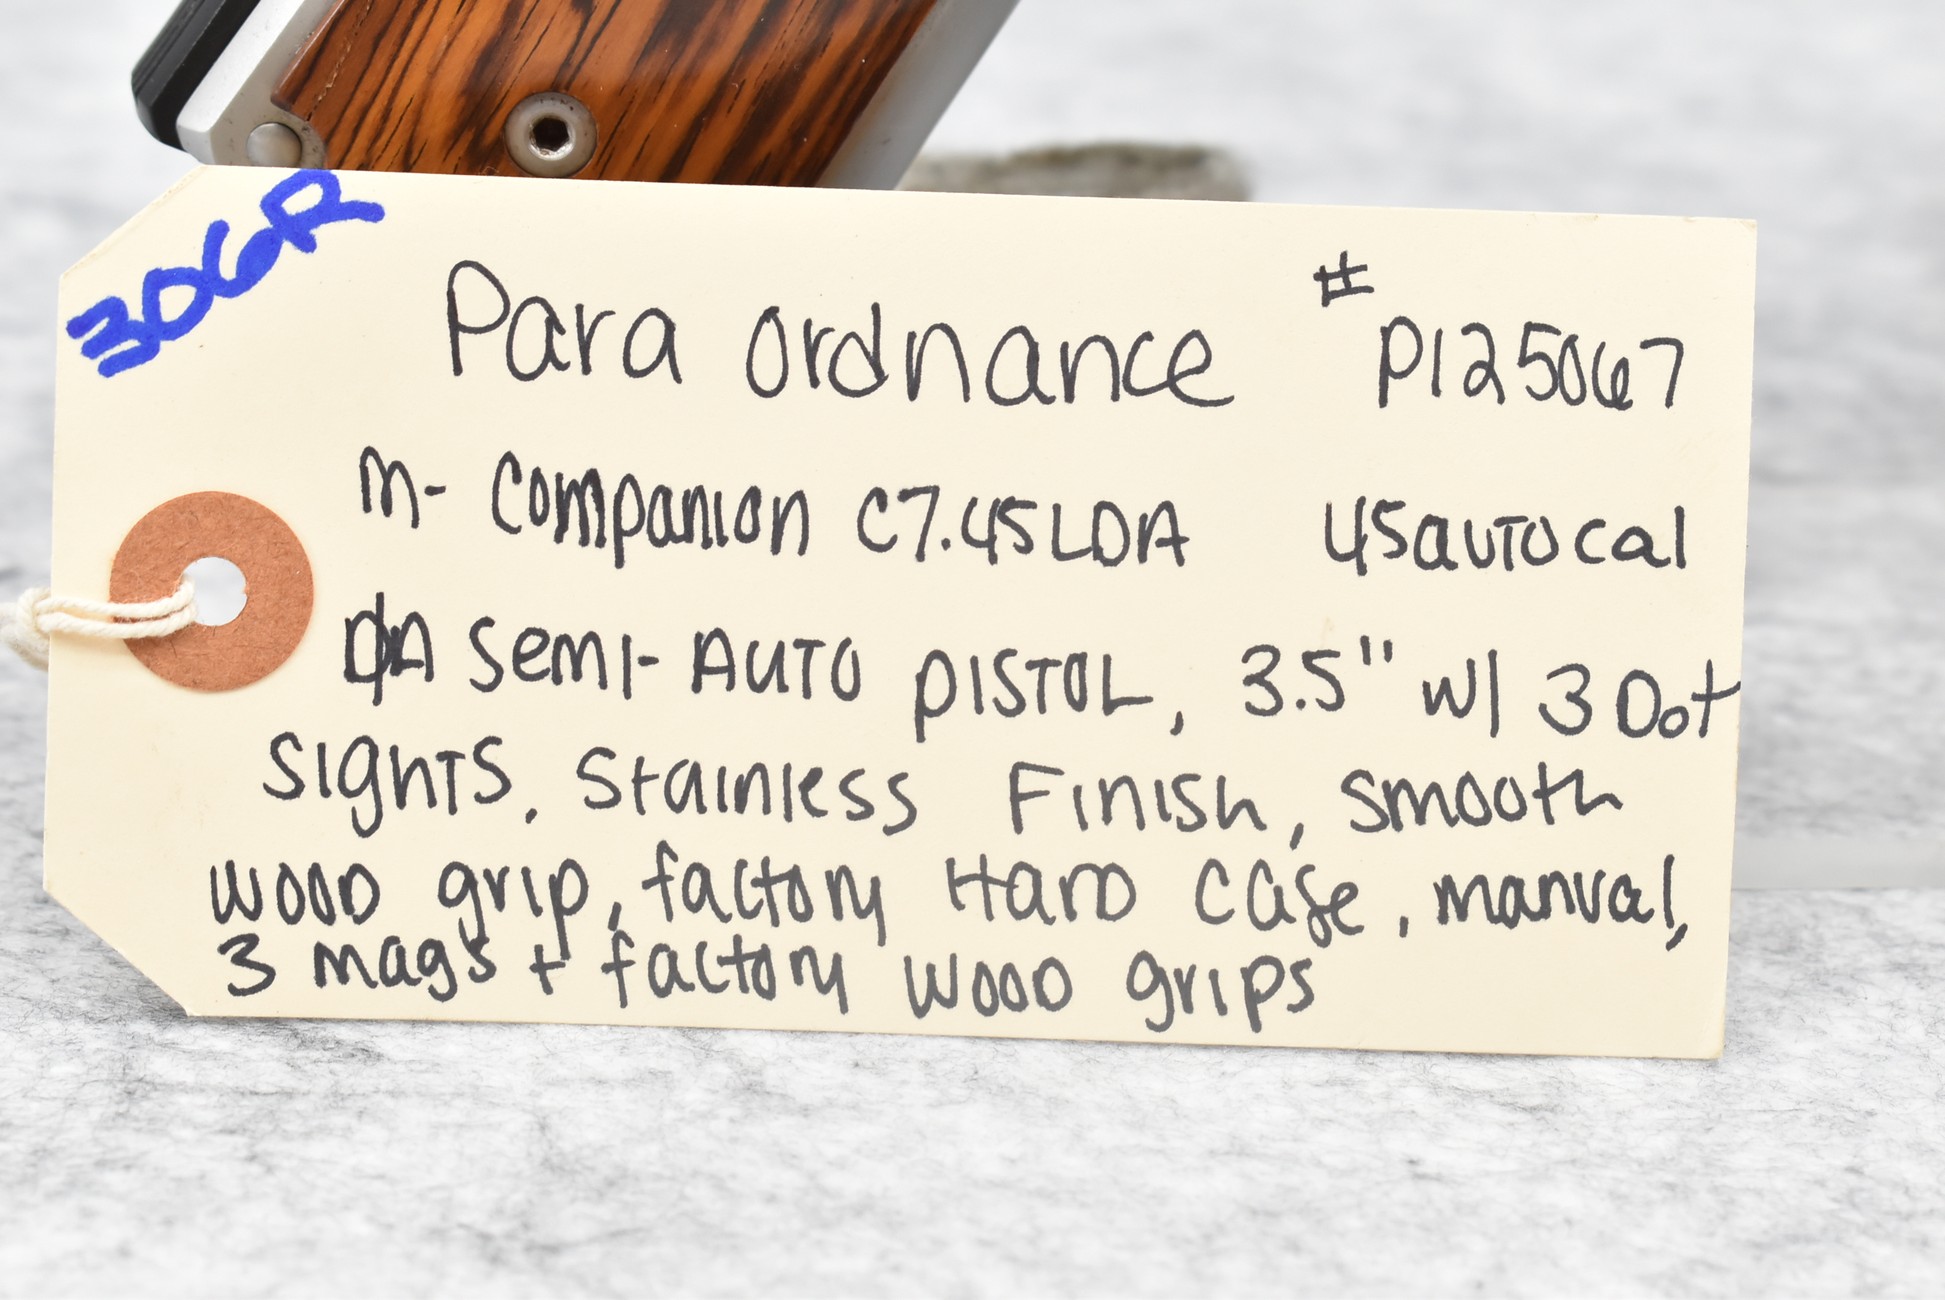 306R
Para Ordnance # P125067
M- Companion C7.45LDA 45 auto cal
DA Semi-Auto Pistol, 3.5" w/ 3 Dot
Sights, Stainless Finish, Smooth
Wood grip, factory Hard Case, manual,
3 mags + factory wood grips